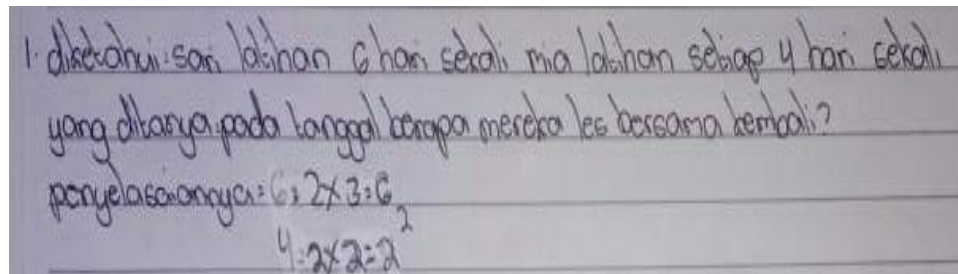 1. diketahui: sari latihan 6 hari sekali mia latihan setiap 4 hari sekali
yang ditanya: pada tanggal berapa mereka les bersama kembali?
penyelasaiannya: 6 = 2x3 = 6
4 = 2x2 = 2²